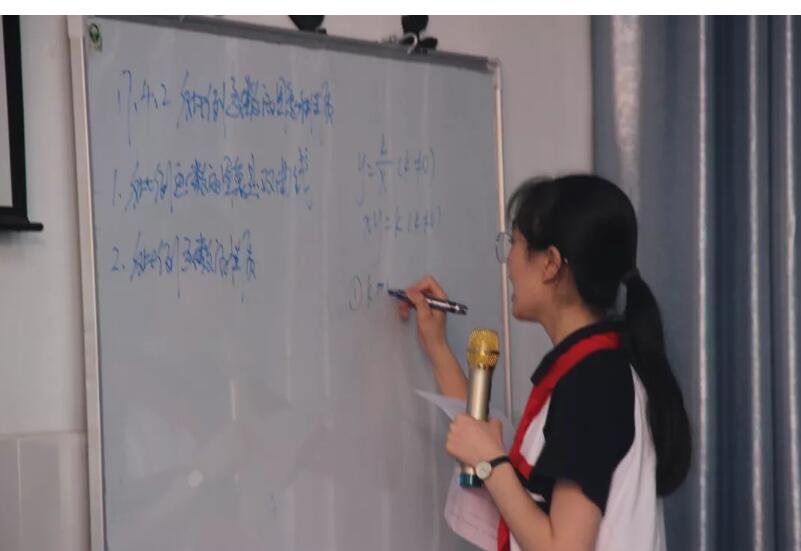 17.4.2 反比例函数的图象和性质
1. 反比例函数的图象是双曲线
2. 反比例函数的性质
y=k/x (k≠0)
xy=k (k≠0)
① k